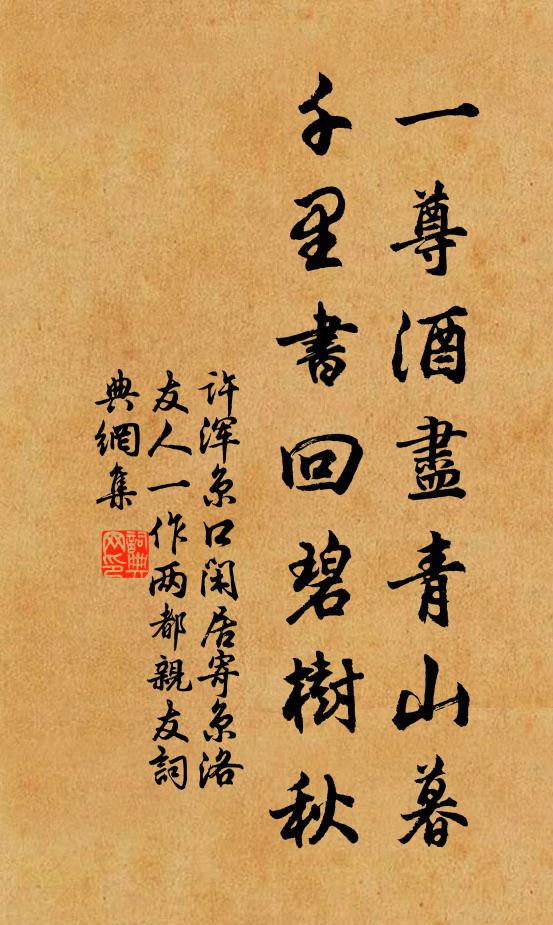 一尊酒盡青山暮
千里書回碧樹秋
许浑京口閑居寄京洛
友人一作两都親友詞
典網集
詞典网印